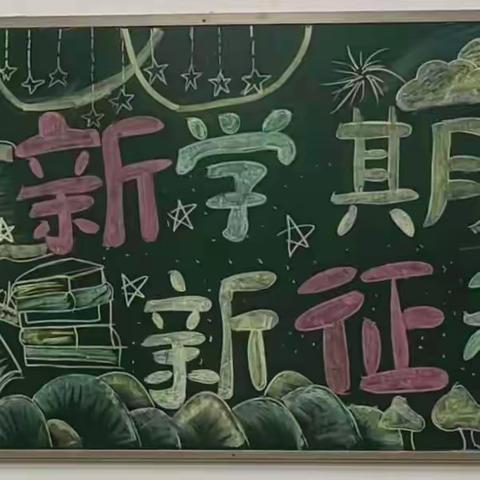 新学期
新征